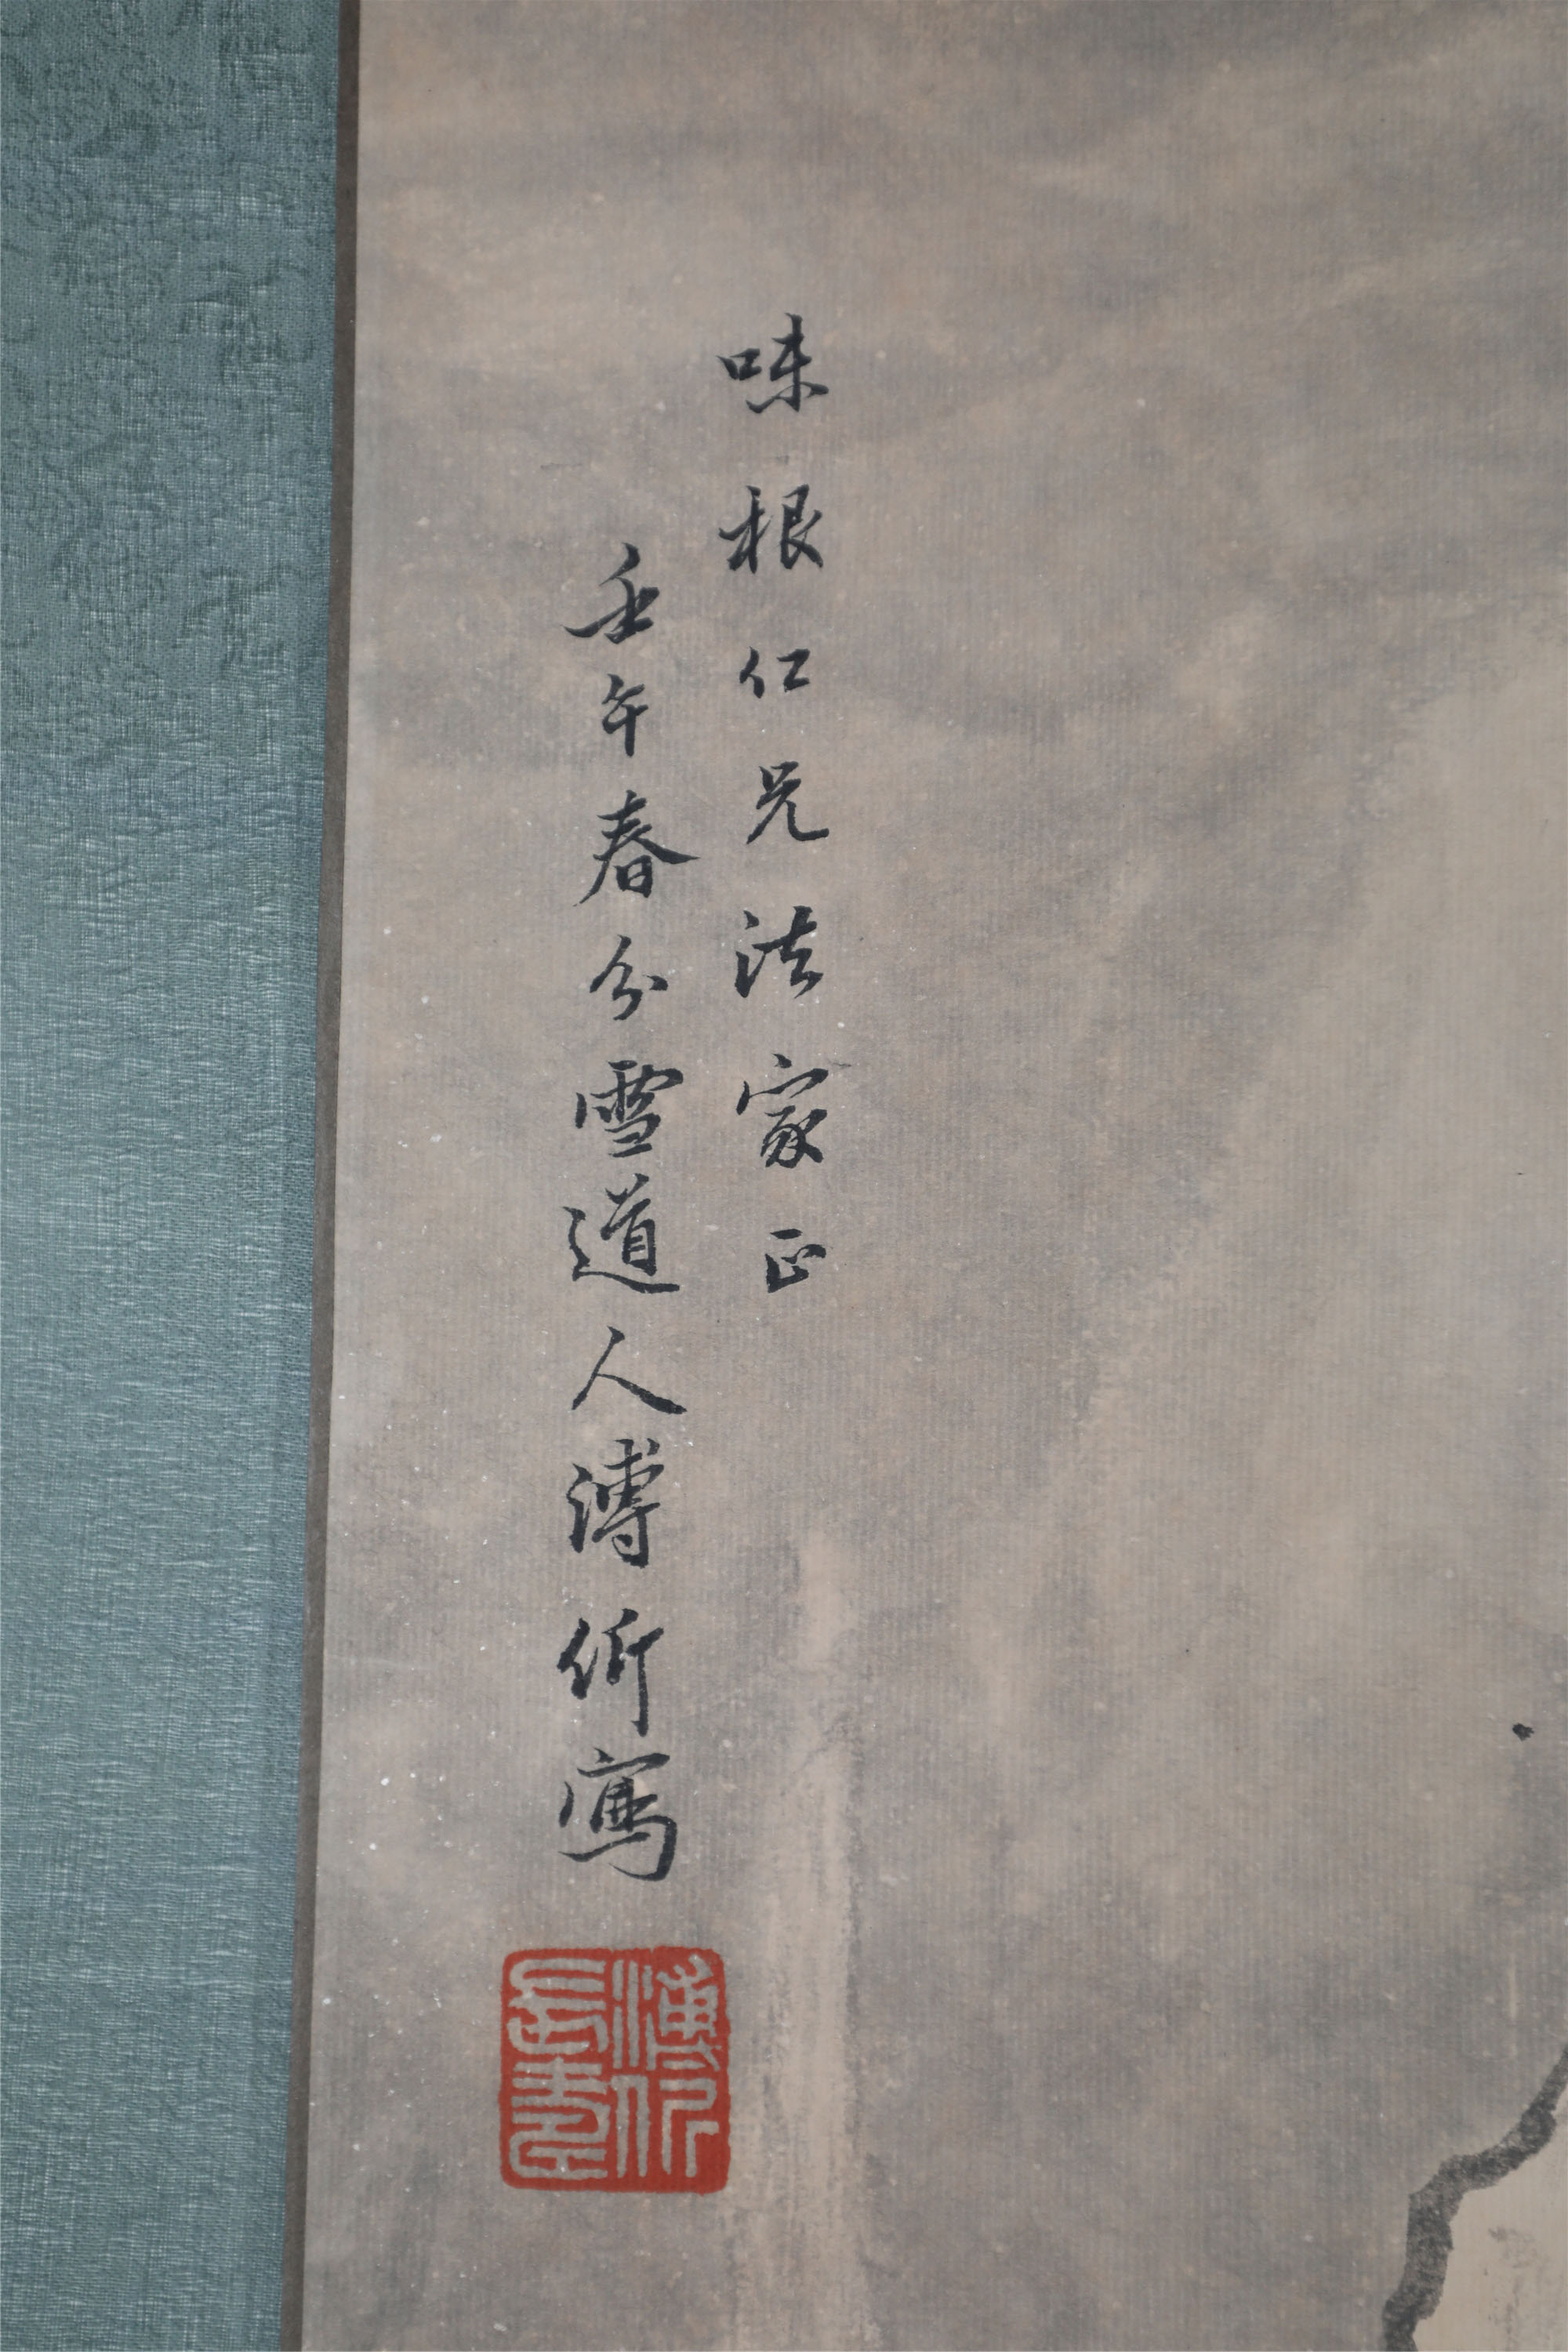 味根仁兄法家正
壬午春分雪道人溥伒寫
溥伒
長壽